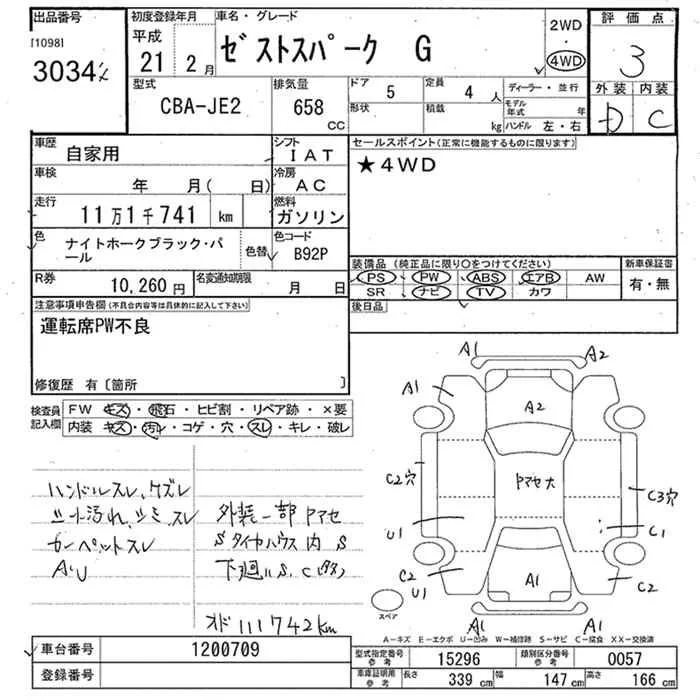 出品番号 初度登録年月 車名・グレード 2WD 評価点
[1098] 平成 ・
3034 21 年 2月 ゼストスパーク G 4WD 3
型式 排気量 ドア 5 定員 4 人 ディーラー・並行 外装 内装
CBA-JE2 658 CC 形状 積載 kg モデル年式 年 D C
ハンドル 左・右
車歴 自家用 シフト IAT セールスポイント(正常に機能するものに限ります)
車検 年 月( 日) 冷房 AC ★4WD
走行 11万1千741 km 燃料 ガソリン
色 ナイトホークブラック・パール 色替 色コード B92P
装備品(純正品に限り○をつけてください) 新車保証書
R券 10,260円 名変通知期限 月 日 PS PW ABS エアB AW 有・無
SR ナビ TV カワ
注意事項申告欄(不具合内容等は具体的に記入して下さい) 後日品
運転席PW不良
修復歴 有〔箇所 〕
検査員記入欄 FW キズ・飛石・ヒビ割・リペア跡・×要
内装 キズ・汚レ・コゲ・穴・スレ・キレ・破レ
A1 A2
A1
A2
C2穴 Pマセ大 C3穴
U1 C1
C2 U1 A1 C2
A1 A1
スペア
ハンドルスレ、ケズレ
シート汚れ、シミ、スレ 外装一部Pマセ
カーペットスレ Sタイヤハウス内S
AU 下廻りS、C
オド111742km
A-キズ E-エクボ U-凹み W-補修跡 S-サビ C-腐食 XX-交換済
車台番号 1200709 型式指定番号 参考 15296 類別区分番号 参考 0057
登録番号 車庫証明用 参考 長さ 339 cm 幅 147 cm 高さ 166 cm